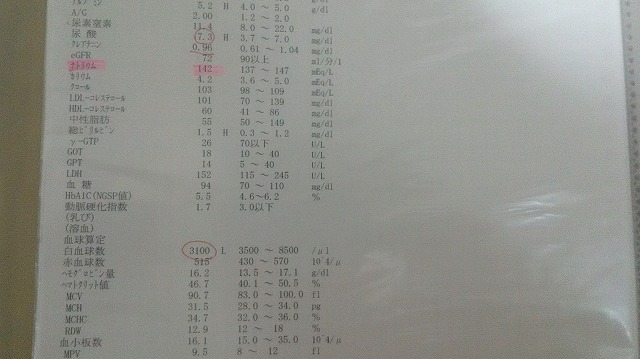 アルブミン 5.2 H 4.0 ~ 5.0 g/dl
A/G 2.00 1.2 ~ 2.0
尿素窒素 11.4 8.0 ~ 22.0 mg/dl
尿 酸 7.3 H 3.7 ~ 7.0 mg/dl
クレアチニン 0.96 0.61 ~ 1.04 mg/dl
eGFR 72 90以上 ml/分/1
ナトリウム 142 137 ~ 147 mEq/L
カリウム 4.2 3.6 ~ 5.0 mEq/L
クロール 103 98 ~ 109 mEq/L
LDL-コレステロール 101 70 ~ 139 mg/dl
HDL-コレステロール 60 41 ~ 86 mg/dl
中性脂肪 55 50 ~ 149 mg/dl
総ビリルビン 1.5 H 0.3 ~ 1.2 mg/dl
γ-GTP 26 70以下 U/L
GOT 18 10 ~ 40 U/L
GPT 14 5 ~ 40 U/L
LDH 152 115 ~ 245 U/L
血 糖 94 70 ~ 110 mg/dl
HbA1C(NGSP値) 5.5 4.6~6.2 %
動脈硬化指数 1.7 3.0以下
(乳び)
(溶血)
血球算定
白血球数 3100 L 3500 ~ 8500 /μl
赤血球数 515 430 ~ 570 10^4/μ
ヘモグロビン量 16.2 13.5 ~ 17.1 g/dl
ヘマトクリット値 46.7 40.1 ~ 50.5 %
MCV 90.7 83.0 ~ 100.0 fl
MCH 31.5 28.0 ~ 34.0 pg
MCHC 34.7 32.0 ~ 36.0 %
RDW 12.9 12 ~ 18 %
血小板数 16.1 15.0 ~ 35.0 10^4/μ
MPV 9.5 8 ~ 12 fl